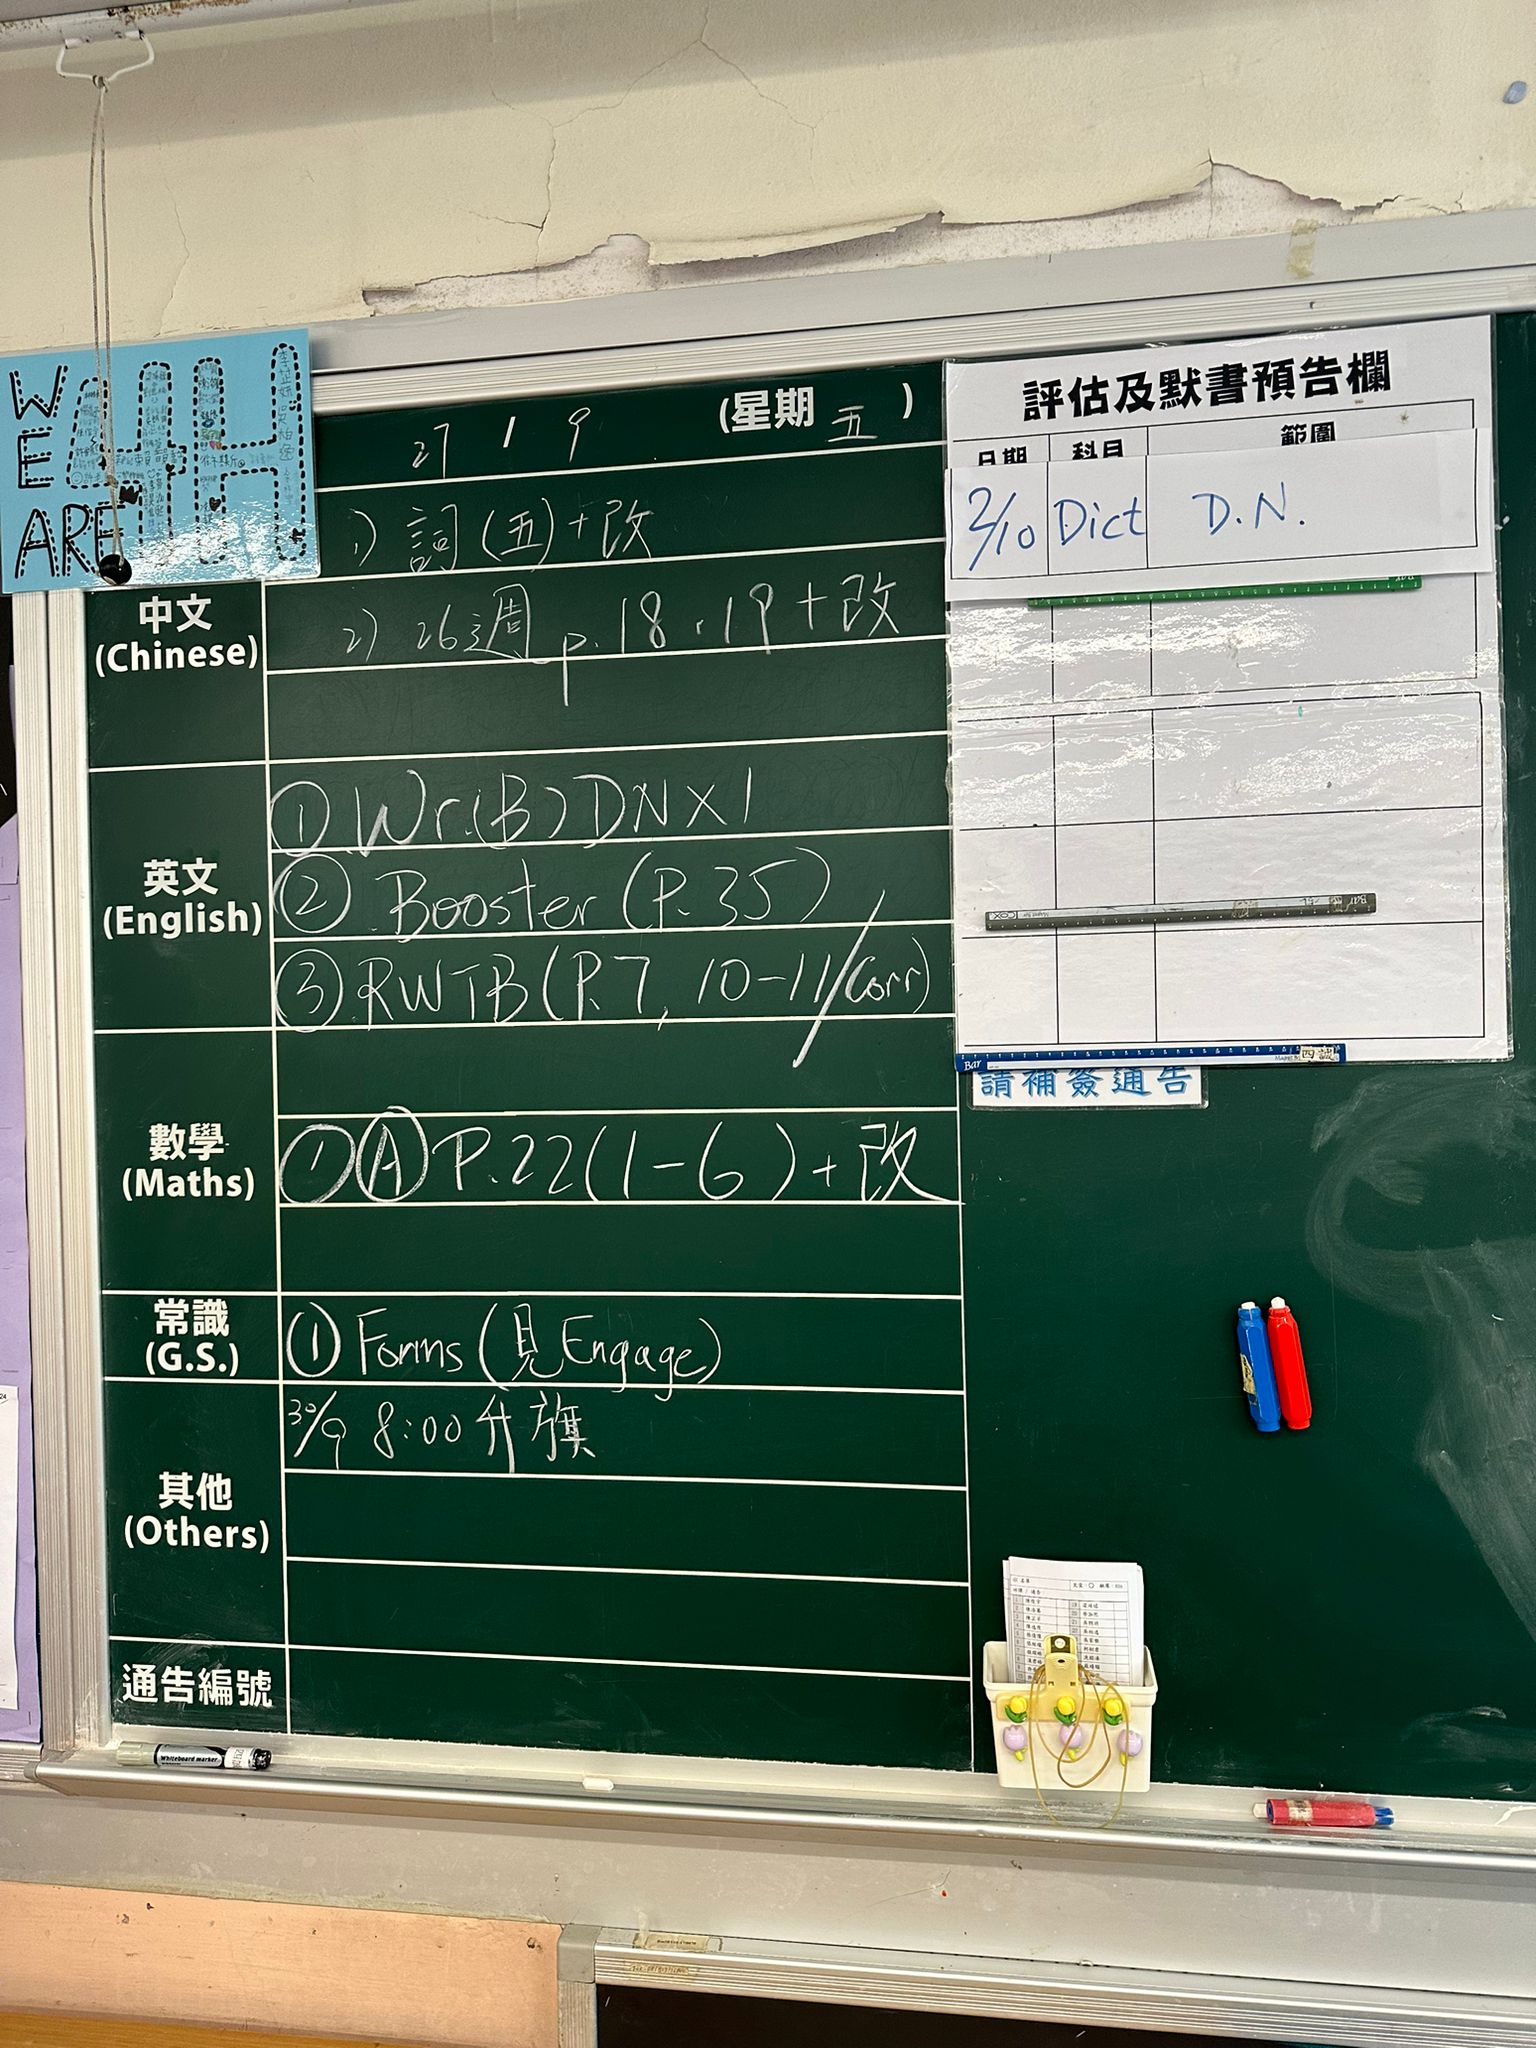 WE ARE 4H
27 / 9 (星期 五 )
中文
(Chinese)
1) 詞(五)+改
2) 26週 p.18,19+改
英文
(English)
① Wr.(B) DN×1
② Booster (P.35)
③ RWTB (P.7, 10-11/Corr)
數學
(Maths)
① Ⓐ P.22(1-6)+改
常識
(G.S.)
① Forms (見Engage)
其他
(Others)
30/9 8:00升旗
通告編號
評估及默書預告欄
日期 科目 範圍
2/10 Dict D.N.
請補簽通告
Whiteboard marker